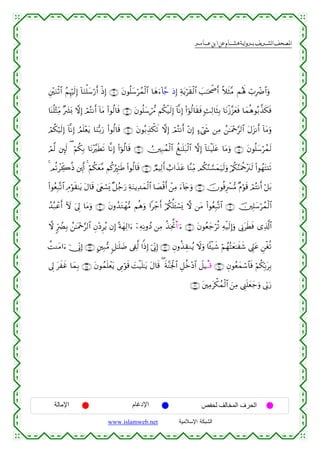 المصحف الشريف برواية هشام عن ابن عامر
وَٱضْرِبْ لَهُم مَّثَلًا أَصْحَـٰبَ ٱلْقَرْيَةِ إِذْ جَآءَهَا ٱلْمُرْسَلُونَ ۝ إِذْ أَرْسَلْنَآ إِلَيْهِمُ ٱثْنَيْنِ
فَكَذَّبُوهُمَا فَعَزَّزْنَا بِثَالِثٍ فَقَالُوٓا۟ إِنَّآ إِلَيْكُم مُّرْسَلُونَ ۝ قَالُوا۟ مَآ أَنتُمْ إِلَّا بَشَرٌ مِّثْلُنَا
وَمَآ أَنزَلَ ٱلرَّحْمَـٰنُ مِن شَىْءٍ إِنْ أَنتُمْ إِلَّا تَكْذِبُونَ ۝ قَالُوا۟ رَبُّنَا يَعْلَمُ إِنَّآ إِلَيْكُمْ
لَمُرْسَلُونَ ۝ وَمَا عَلَيْنَآ إِلَّا ٱلْبَلَـٰغُ ٱلْمُبِينُ ۝ قَالُوٓا۟ إِنَّا تَطَيَّرْنَا بِكُمْ لَئِن لَّمْ
تَنتَهُوا۟ لَنَرْجُمَنَّكُمْ وَلَيَمَسَّنَّكُم مِّنَّا عَذَابٌ أَلِيمٌ ۝ قَالُوا۟ طَـٰٓئِرُكُم مَّعَكُمْ أَئِن ذُكِّرْتُم
بَلْ أَنتُمْ قَوْمٌ مُّسْرِفُونَ ۝ وَجَآءَ مِنْ أَقْصَا ٱلْمَدِينَةِ رَجُلٌ يَسْعَىٰ قَالَ يَـٰقَوْمِ ٱتَّبِعُوا۟
ٱلْمُرْسَلِينَ ۝ ٱتَّبِعُوا۟ مَن لَّا يَسْـَٔلُكُمْ أَجْرًا وَهُم مُّهْتَدُونَ ۝ وَمَا لِى لَآ أَعْبُدُ
ٱلَّذِى فَطَرَنِى وَإِلَيْهِ تُرْجَعُونَ ۝ ءَأَتَّخِذُ مِن دُونِهِۦٓ ءَالِهَةً إِن يُرِدْنِ ٱلرَّحْمَـٰنُ بِضُرٍّ لَّا
تُغْنِ عَنِّى شَفَـٰعَتُهُمْ شَيْـًٔا وَلَا يُنقِذُونِ ۝ إِنِّىٓ إِذًا لَّفِى ضَلَـٰلٍ مُّبِينٍ ۝ إِنِّىٓ ءَامَنتُ
بِرَبِّكُمْ فَٱسْمَعُونِ ۝ قِيلَ ٱدْخُلِ ٱلْجَنَّةَ قَالَ يَـٰلَيْتَ قَوْمِى يَعْلَمُونَ ۝ بِمَا غَفَرَ لِى
رَبِّى وَجَعَلَنِى مِنَ ٱلْمُكْرَمِينَ ۝
الحرف المخالف لحفص الإدغام الإمالة
www.islamweb.net الشبكة الإسلامية